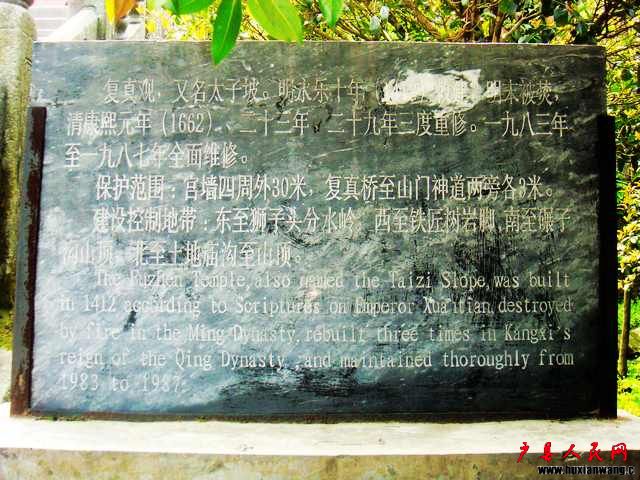 复真观，又名太子坡。明永乐十年（ 明末被焚，
清康熙元年（1662）、二十三年、二十九年三度重修。一九八三年
至一九八七年全面维修。
保护范围：宫墙四周外30米，复真桥至山门神道两旁各3米。
建设控制地带：东至狮子头分水岭，西至铁匠树岩脚，南至碾子
沟山顶，北至土地庙沟至山顶。
The Fuzhen Temple, also named the Taizi Slope, was built
in 1412 according to Scriptures on Emperor Xuantian, destroyed
by fire in the Ming Dynasty, rebuilt three times in Kangxi's
reign of the Qing Dynasty, and maintained thoroughly from
1983 to 1987.
户县人民网
www.huxianwang.c